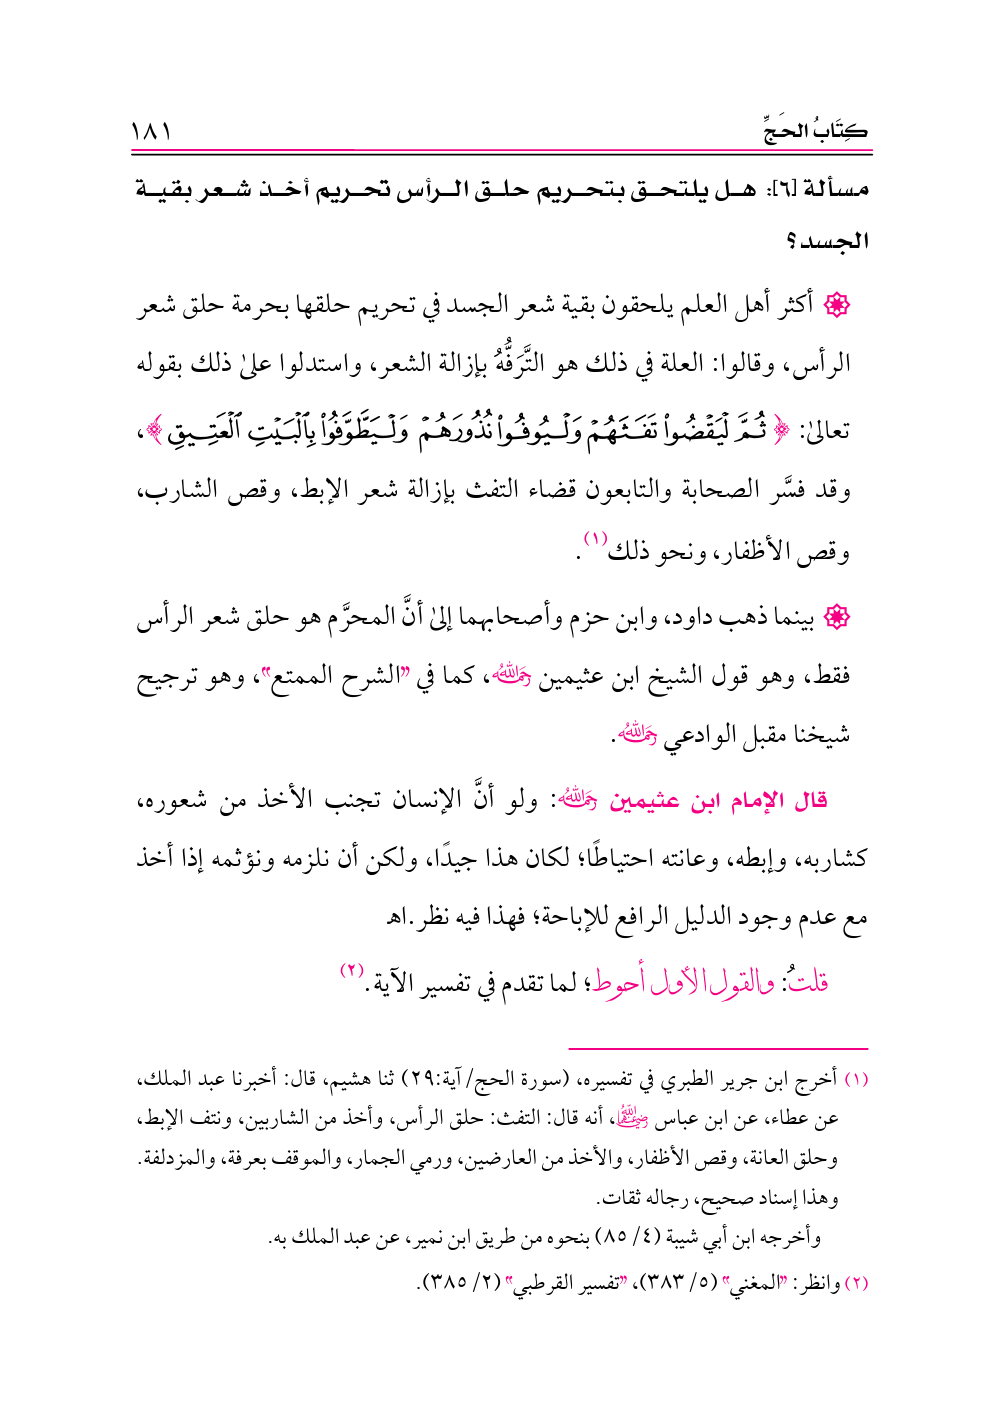 كِتَابُ الحَجِّ ١٨١
مسألة [٦]: هـل يلتحـق بتحـريم حلـق الـرأس تحـريم أخـذ شـعر بقيـة
الجسد؟
أكثر أهل العلم يلحقون بقية شعر الجسد في تحريم حلقها بحرمة حلق شعر
الرأس، وقالوا: العلة في ذلك هو التَّرَفُّهُ بإزالة الشعر، واستدلوا علىٰ ذلك بقوله
تعالىٰ: ﴿ثُمَّ لْيَقْضُوا۟ تَفَثَهُمْ وَلْيُوفُوا۟ نُذُورَهُمْ وَلْيَطَّوَّفُوا۟ بِٱلْبَيْتِ ٱلْعَتِيقِ﴾،
وقد فسَّر الصحابة والتابعون قضاء التفث بإزالة شعر الإبط، وقص الشارب،
وقص الأظفار، ونحو ذلك(١).
بينما ذهب داود، وابن حزم وأصحابهما إلىٰ أنَّ المحرَّم هو حلق شعر الرأس
فقط، وهو قول الشيخ ابن عثيمين رَحِمَهُ اللهُ، كما في "الشرح الممتع"، وهو ترجيح
شيخنا مقبل الوادعي رَحِمَهُ اللهُ.
قال الإمام ابن عثيمين رَحِمَهُ اللهُ: ولو أنَّ الإنسان تجنب الأخذ من شعوره،
كشاربه، وإبطه، وعانته احتياطًا؛ لكان هذا جيدًا، ولكن أن نلزمه ونؤثمه إذا أخذ
مع عدم وجود الدليل الرافع للإباحة؛ فهذا فيه نظر.اهـ
قلتُ: والقول الأول أحوط؛ لما تقدم في تفسير الآية.(٢)
(١) أخرج ابن جرير الطبري في تفسيره، (سورة الحج/ آية:٢٩) ثنا هشيم، قال: أخبرنا عبد الملك،
عن عطاء، عن ابن عباس رَضِيَ اللهُ عَنْهُمَا، أنه قال: التفث: حلق الرأس، وأخذ من الشاربين، ونتف الإبط،
وحلق العانة، وقص الأظفار، والأخذ من العارضين، ورمي الجمار، والموقف بعرفة، والمزدلفة.
وهذا إسناد صحيح، رجاله ثقات.
وأخرجه ابن أبي شيبة (٤/ ٨٥) بنحوه من طريق ابن نمير، عن عبد الملك به.
(٢) وانظر: "المغني" (٥/ ٣٨٣)، "تفسير القرطبي" (٢/ ٣٨٥).